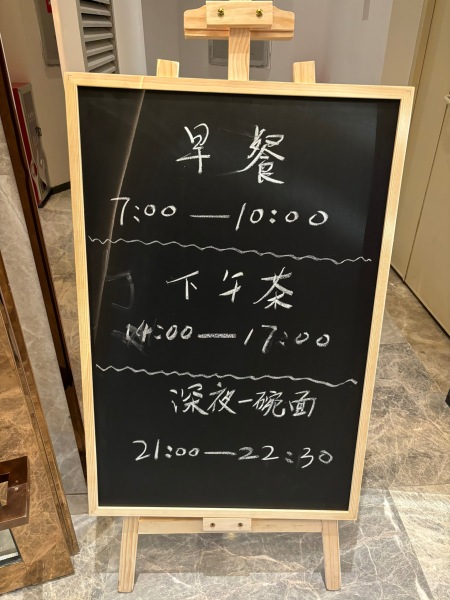 早餐
7:00—10:00
下午茶
14:00—17:00
深夜一碗面
21:00—22:30